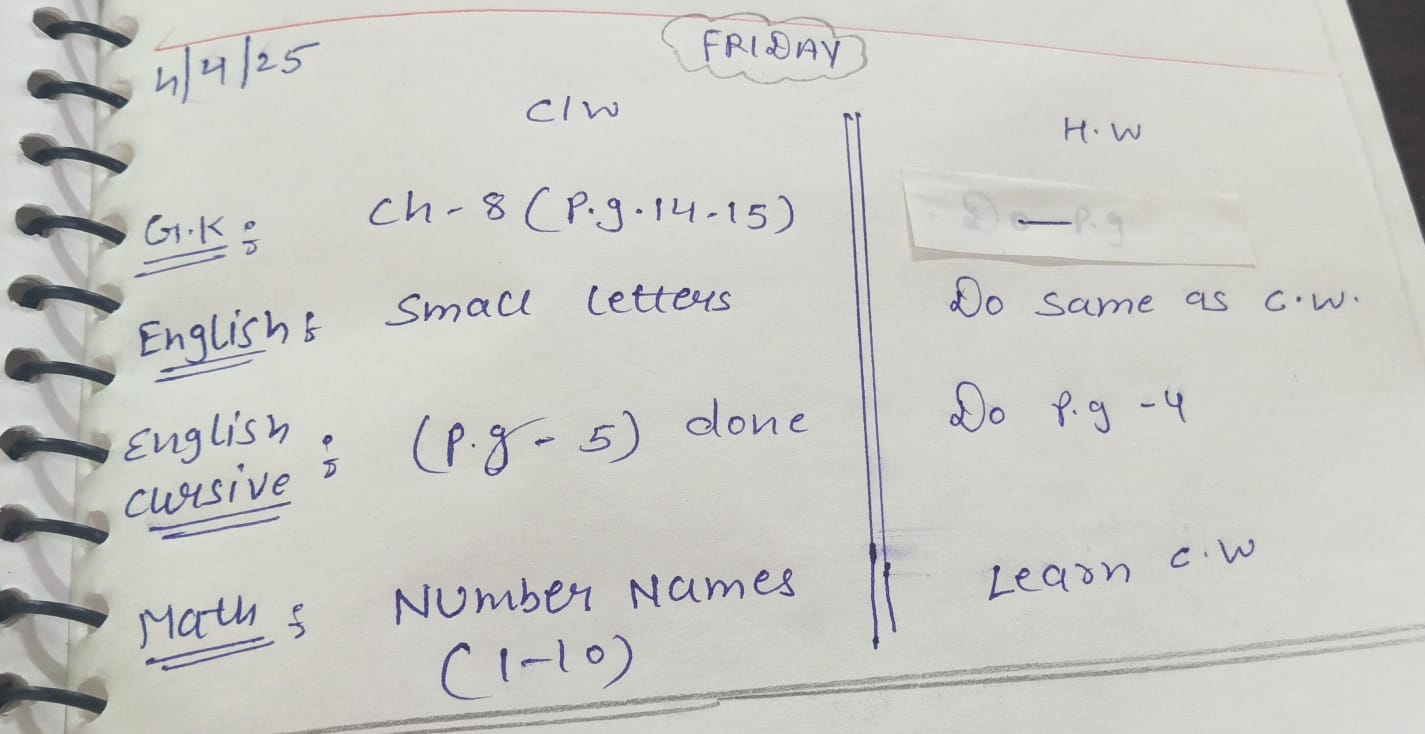 4/4/25 FRIDAY
C/W H.W
G.K : Ch-8 (P.g.14-15) Do — P.g
English : Small letters Do same as C.W.
English
cursive : (P.g - 5) done Do P.g - 4
Math : Number Names Learn C.W
(1-10)